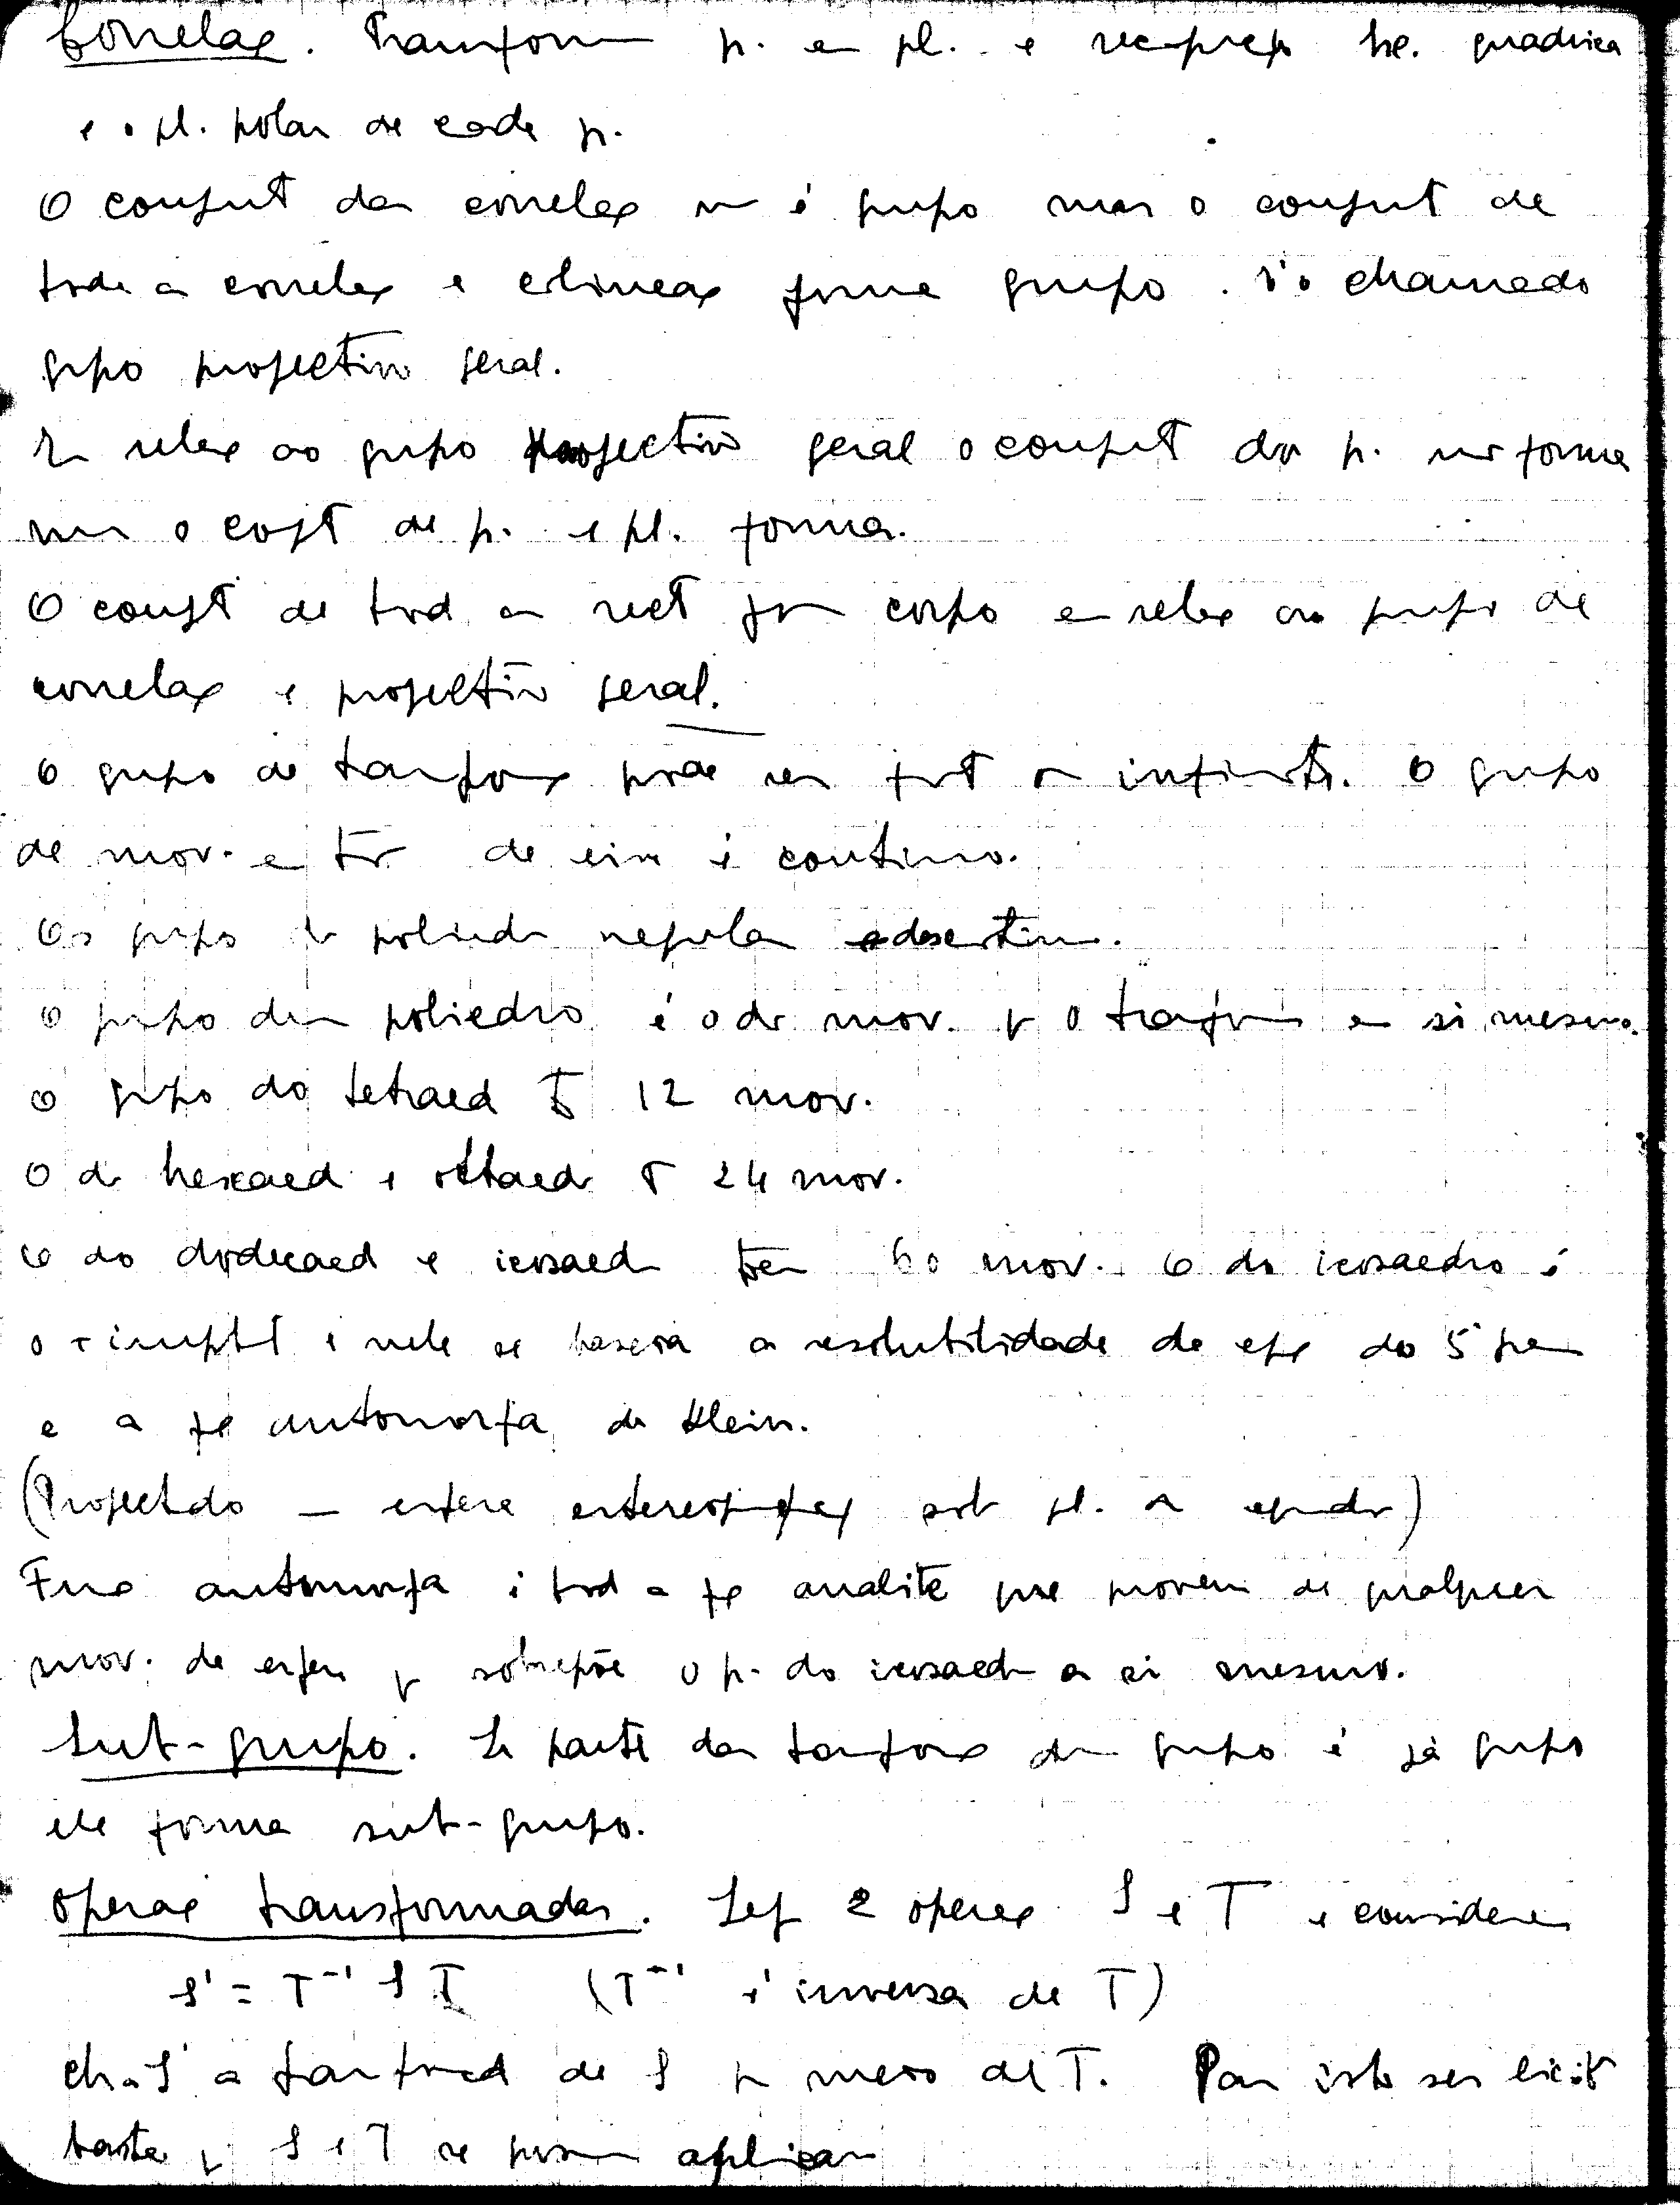 Correlaç. Transform p. e pl. e reciproc he. quadrica
e o pl. polar de cada p.
O conjunt das correlaç n é grupo mas o conjunt de
toda a correlaç e colineaç forma grupo. É o chamado
grpo projectivo geral.
Em relaç ao grupo projectivo geral o conjunt dos p. não forma
mas o cojt de p. e pl. forma.
O conjt de tod as rect for corpo em relaç ao grupo de
correlaç e projectivo geral.
O grupo de tansforç pode ser fint ou infinito. O grupo
de mov. em tr de eix é continuo.
Os grupo de poliedr regula descontin.
O grupo dum poliedro é o do mov. q o trasform em si mesmo.
O grpo do tetraed t 12 mov.
O do hexaed e octaed t 24 mov.
O do dodecaed e icosaed tem 60 mov. O do icosaedro é
o + impt e nele se baseia a resolubilidade de eqç do 5º grau
e a fç automorfa de Klein.
(Projectdo esfera estereogrf sob pl. do equador)
Funç automorfa é tod a fç analitc que provem de qualquer
mov. de esfera q sobrepõe o p. do icosaed a si mesmo.
Sub-grupo. Se parte das tansforç dum grupo é já grupo
ele forma sub-grupo.
Operaç transformadas. Sej 2 operaç S e T e consideremos
S' = T⁻¹ S T (T⁻¹ é inversa de T)
ch. S' a tansformad de S por meio de T. Para isto ser licito
basta q S e T se possam aplicar